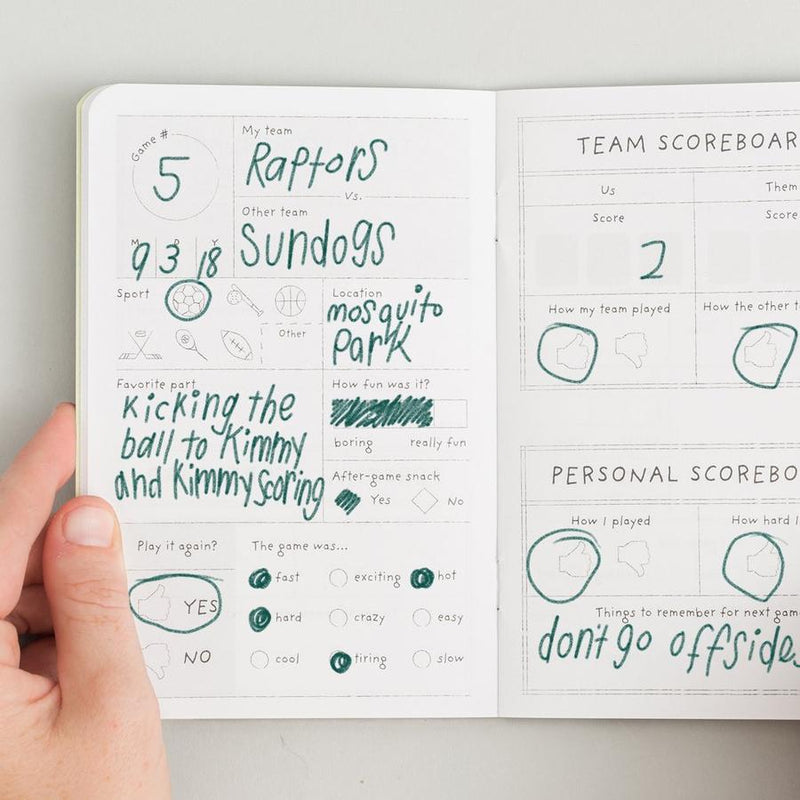 Game #
5
My team
Raptors
Vs.
Other team
Sundogs
M D Y
9 3 18
Sport
Other
Location
mosquito
Park
Favorite part
Kicking the
ball to Kimmy
and Kimmy scoring
How fun was it?
boring really fun
After-game snack
Yes No
Play it again?
YES
NO
The game was...
fast exciting hot
hard crazy easy
cool tiring slow
TEAM SCOREBOAR
Us Them
Score Score
2
How my team played How the other t
PERSONAL SCOREBO
How I played How hard I
Things to remember for next gam
don't go offsides